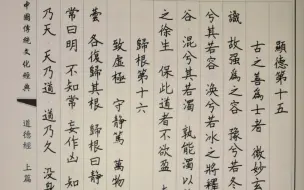 顯德第十五
古之善為士者 微妙玄
識 故強為之容 豫兮若冬
兮其若容 渙兮若冰之將釋
谷 混兮其若濁 孰能濁以
之徐生 保此道者不欲盈
歸根第十六
致虛極 守靜篤 萬物
芸 各復歸其根 歸根曰靜
常曰明 不知常 妄作凶 知
乃天 天乃道 道乃久 沒
中國傳統文化經典 道德經 上篇